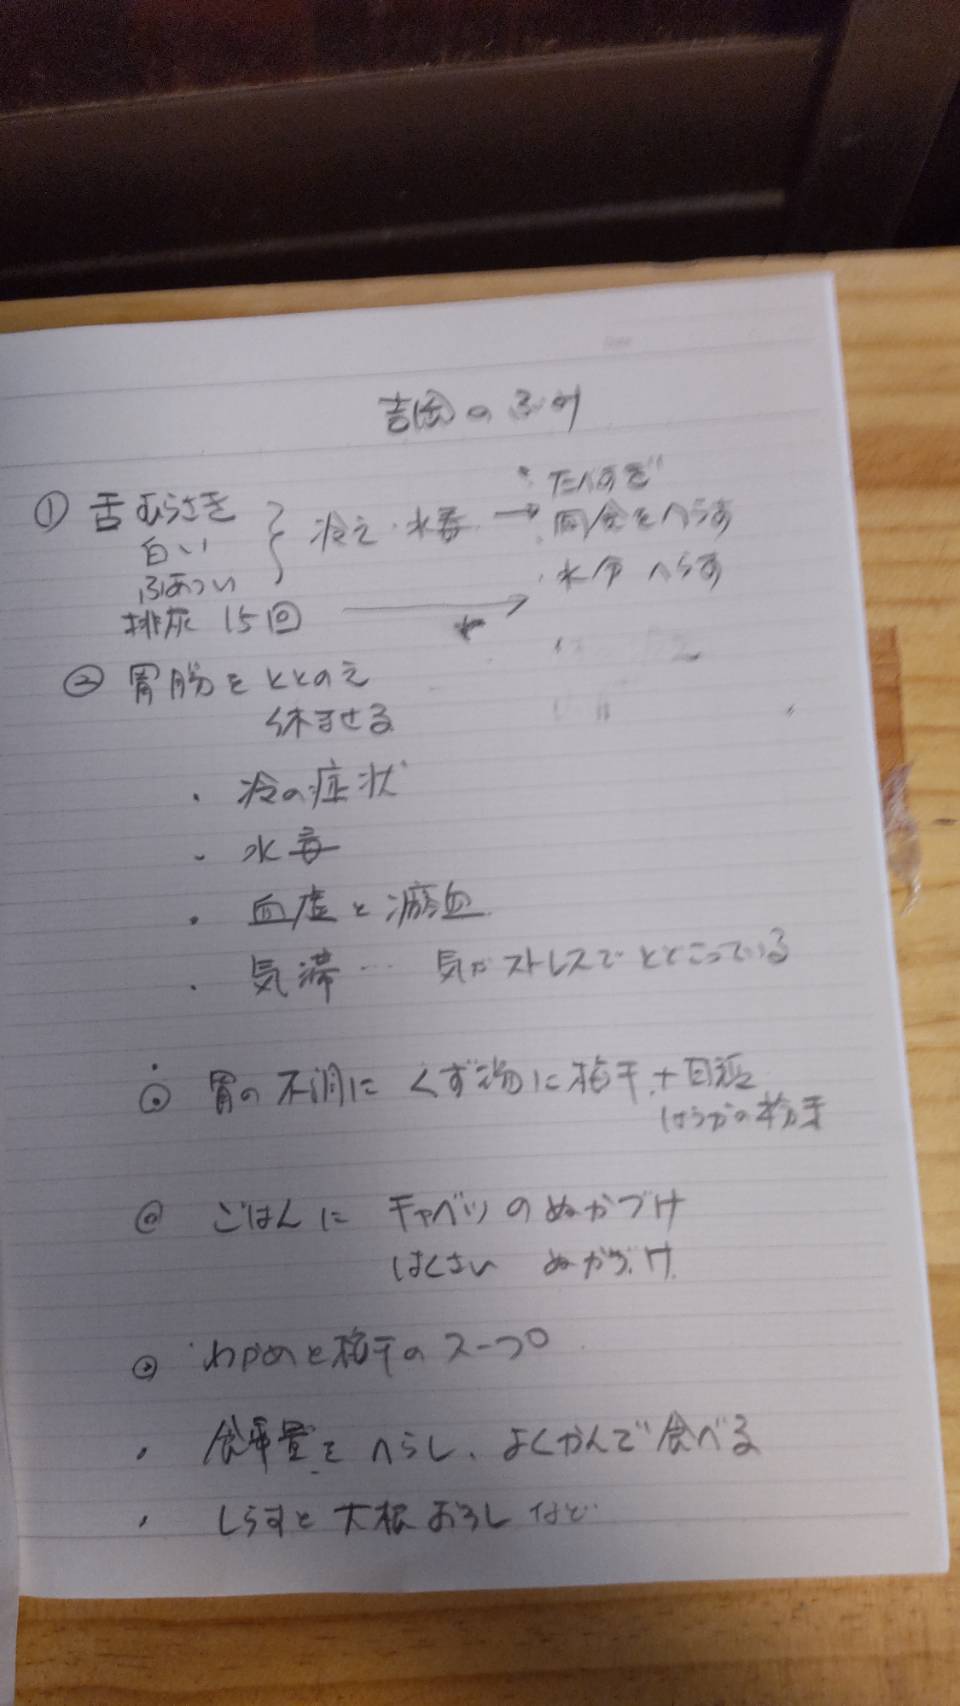 吉岡の
・たべすぎ
① 舌むらさき 冷え・水毒 → 間食をへらす
白い
・水分へらす
ふあつい
排尿 15回
② 胃腸をととのえ
休ませる
・冷の症状
・水毒
・血虚と瘀血
・気滞… 気がストレスでとどこっている
胃の不調にくず湯に梅干+
ごはんに キャベツのぬかづけ
はくさい ぬかづけ
わかめと梅干のスープ
・食事量をへらし、よくかんで食べる
・しらすと大根おろしなど